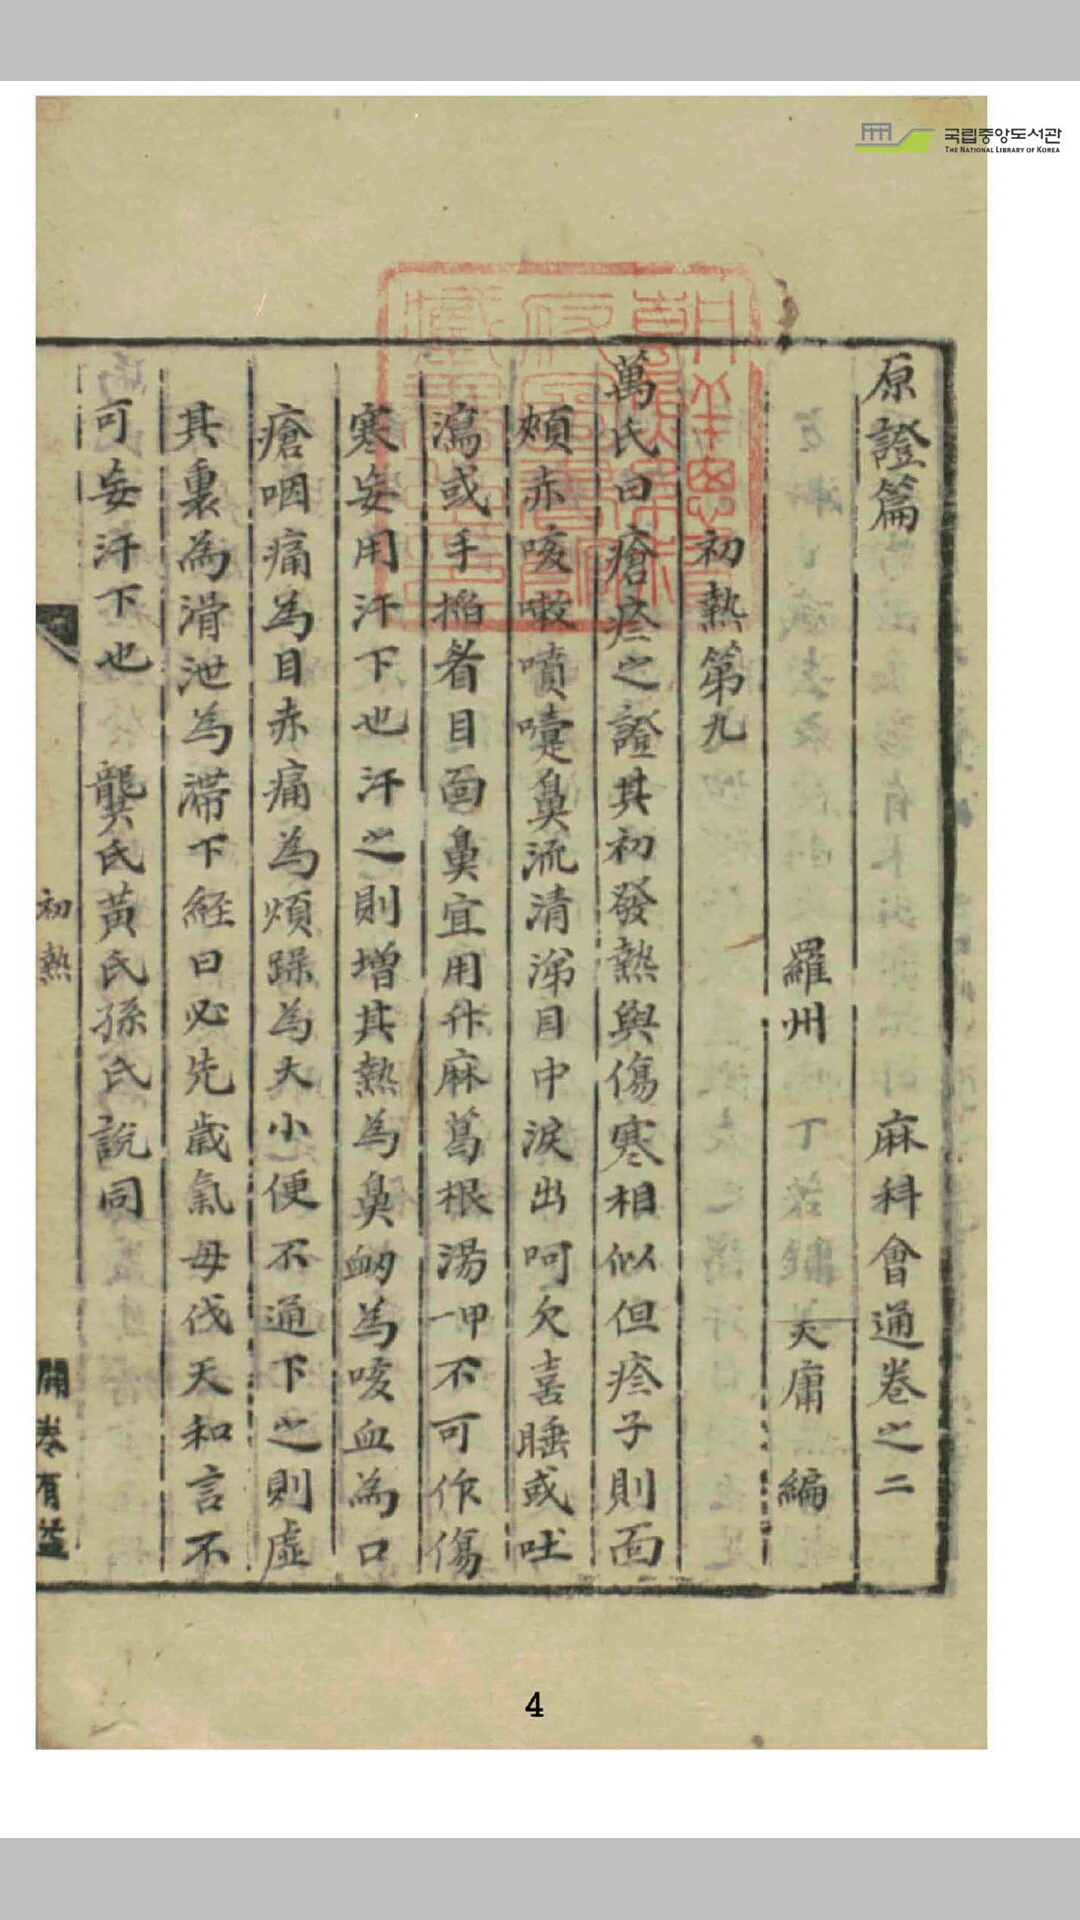 국립중앙도서관
THE NATIONAL LIBRARY OF KOREA
原證篇 麻科會通卷之二
羅州 丁 美庸 編
初熱第九
萬氏曰瘡疹之證其初發熱與傷寒相似但疹子則面
頰赤咳嗽噴嚏鼻流清涕目中淚出呵欠喜睡或吐
瀉或手搯眉目面鼻宜用升麻葛根湯一甲不可作傷
寒妄用汗下也汗之則增其熱為鼻衂為咳血為口
瘡咽痛為目赤痛為煩躁為大小便不通下之則虛
其裏為滑泄為滯下経曰必先歲氣毋伐天和言不
可妄汗下也 龔氏黃氏孫氏說同
初熱
開卷有益
4